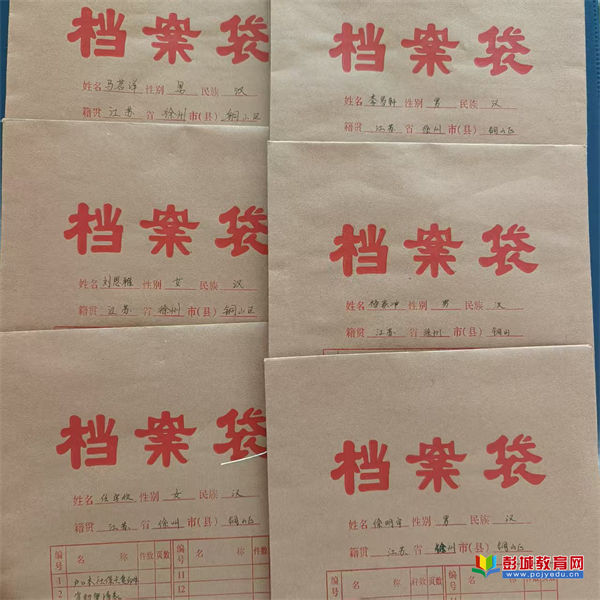 档案袋
姓名 马茗洋 性别 男 民族 汉
籍贯 江苏 省 徐州 市(县) 铜山区
档案袋
姓名 李昂轩 性别 男 民族 汉
籍贯 江苏 省 徐州 市(县) 铜山区
档案袋
姓名 刘思雅 性别 女 民族 汉
籍贯 江苏 省 徐州 市(县) 铜山区
档案袋
姓名 性别 男 民族 汉
籍贯 江苏 省 徐州 市(县) 铜山
档案袋
姓名 性别 女 民族 汉
籍贯 江苏 省 徐州 市(县) 铜山区
编号 名 称 件数 页数 编号 名 称 件数
1 11
2 12
档案袋
姓名 徐明宇 性别 男 民族 汉
籍贯 江苏 省 徐州 市(县) 铜山区
编号 名 称 份数 页数 编号 名 称
1 11
2
彭城教育网
www.pcjyedu.cn